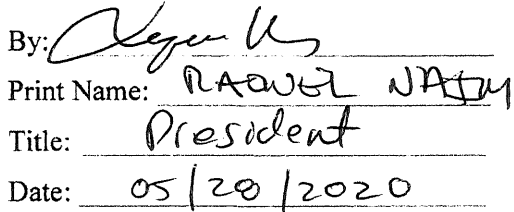 By:
Print Name: RAQUEL NAJM
Title: President
Date: 05/20/2020